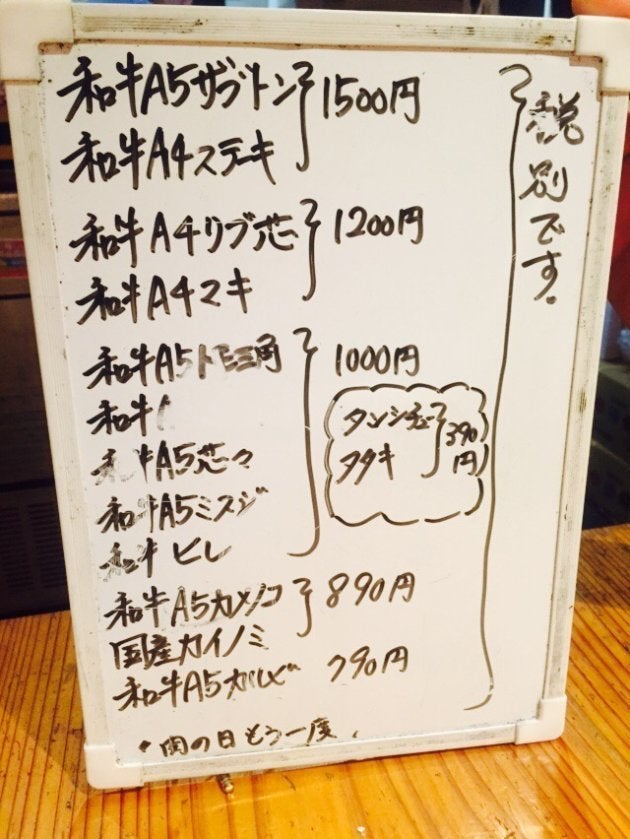 和牛A5ザブトン
和牛A4ステーキ
1500円
和牛A4リブ芯
和牛A4マキ
1200円
和牛A5トモ三角
和牛
和牛A5芯々
和牛A5ミスジ
和牛ヒレ
1000円
タンシチュー
タタキ
390円
和牛A5カメノコ
国産カイノミ
890円
和牛A5カルビ 790円
・肉の日もう一度、
税別です。